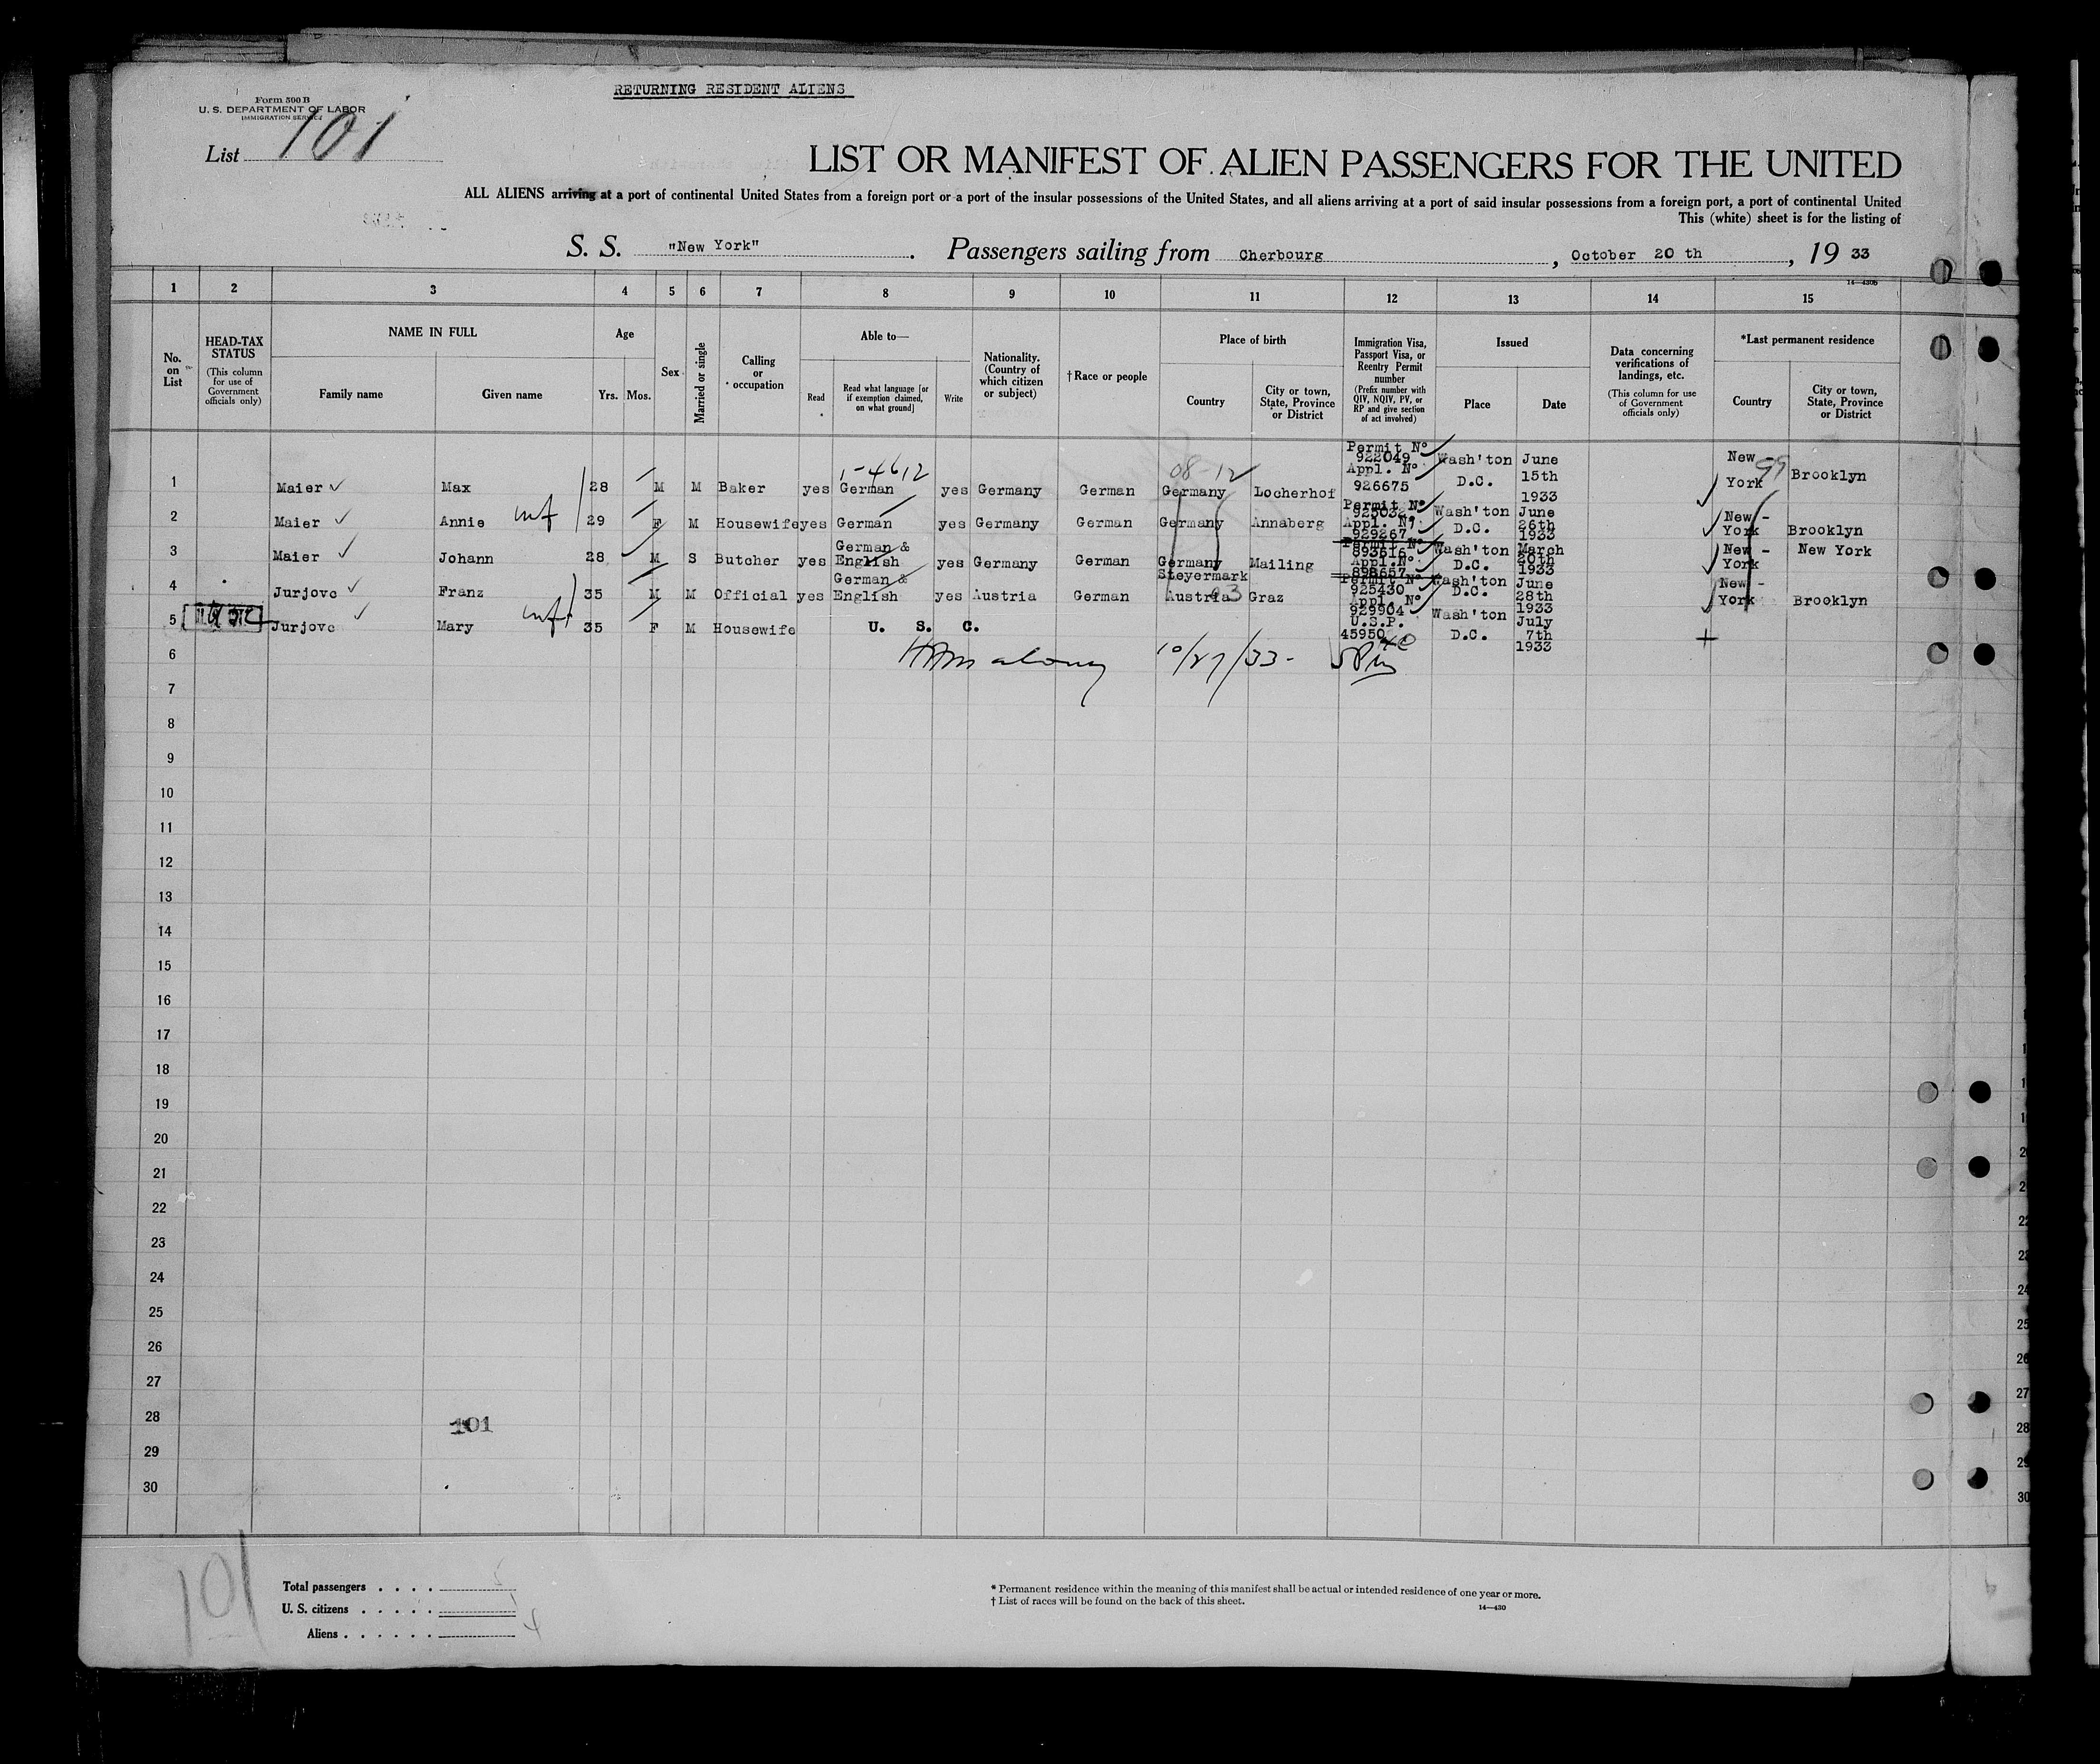 RETURNING RESIDENT ALIENS
Form 500 B
U. S. DEPARTMENT OF LABOR
IMMIGRATION SERVICE
List 101
LIST OR MANIFEST OF ALIEN PASSENGERS FOR THE UNITED
ALL ALIENS arriving at a port of continental United States from a foreign port or a port of the insular possessions of the United States, and all aliens arriving at a port of said insular possessions from a foreign port, a port of continental United
This (white) sheet is for the listing of
S. S. "New York". Passengers sailing from Cherbourg, October 20 th, 19 33
14—4306
1 2 3 4 5 6 7 8 9 10 11 12 13 14 15
No. on List
HEAD-TAX STATUS (This column for use of Government officials only)
NAME IN FULL
Family name Given name
Age
Yrs. Mos.
Sex
Married or single
Calling or occupation
Able to—
Read
Read what language [or if exemption claimed, on what ground]
Write
Nationality. (Country of which citizen or subject)
†Race or people
Place of birth
Country
City or town, State, Province or District
Immigration Visa, Passport Visa, or Reentry Permit number (Prefix number with QIV, NQIV, PV, or RP and give section of act involved)
Issued
Place Date
Data concerning verifications of landings, etc. (This column for use of Government officials only)
*Last permanent residence
Country
City or town, State, Province or District
1 Maier Max 28 M M Baker yes German yes Germany German Germany Locherhof Permit No 922049 Appl. No 926675 Wash'ton D.C. June 15th 1933 New York Brooklyn
2 Maier Annie 29 F M Housewife yes German yes Germany German Germany Annaberg Permit No 925032 Appl. No 929267 Wash'ton D.C. June 26th 1933 New - York Brooklyn
3 Maier Johann 28 M S Butcher yes German & English yes Germany German Germany Mailing Permit No 893616 Appl. No 898657 Wash'ton D.C. March 20th 1933 New - York New York
4 Jurjovc Franz 35 M M Official yes German & English yes Austria German Steyermark Austria Graz Permit No 925430 Appl. No 929904 Wash'ton D.C. June 28th 1933 New - York Brooklyn
5 Jurjovc Mary 35 F M Housewife U. S. C. U.S.P. 45950 Wash'ton D.C. July 7th 1933
6 10/27/33-
7
8
9
10
11
12
13
14
15
16
17
18
19
20
21
22
23
24
25
26
27
28 101
29
30
101
Total passengers . . . .
U. S. citizens . . . . .
Aliens . . . . . . 4
* Permanent residence within the meaning of this manifest shall be actual or intended residence of one year or more.
† List of races will be found on the back of this sheet.
14—430